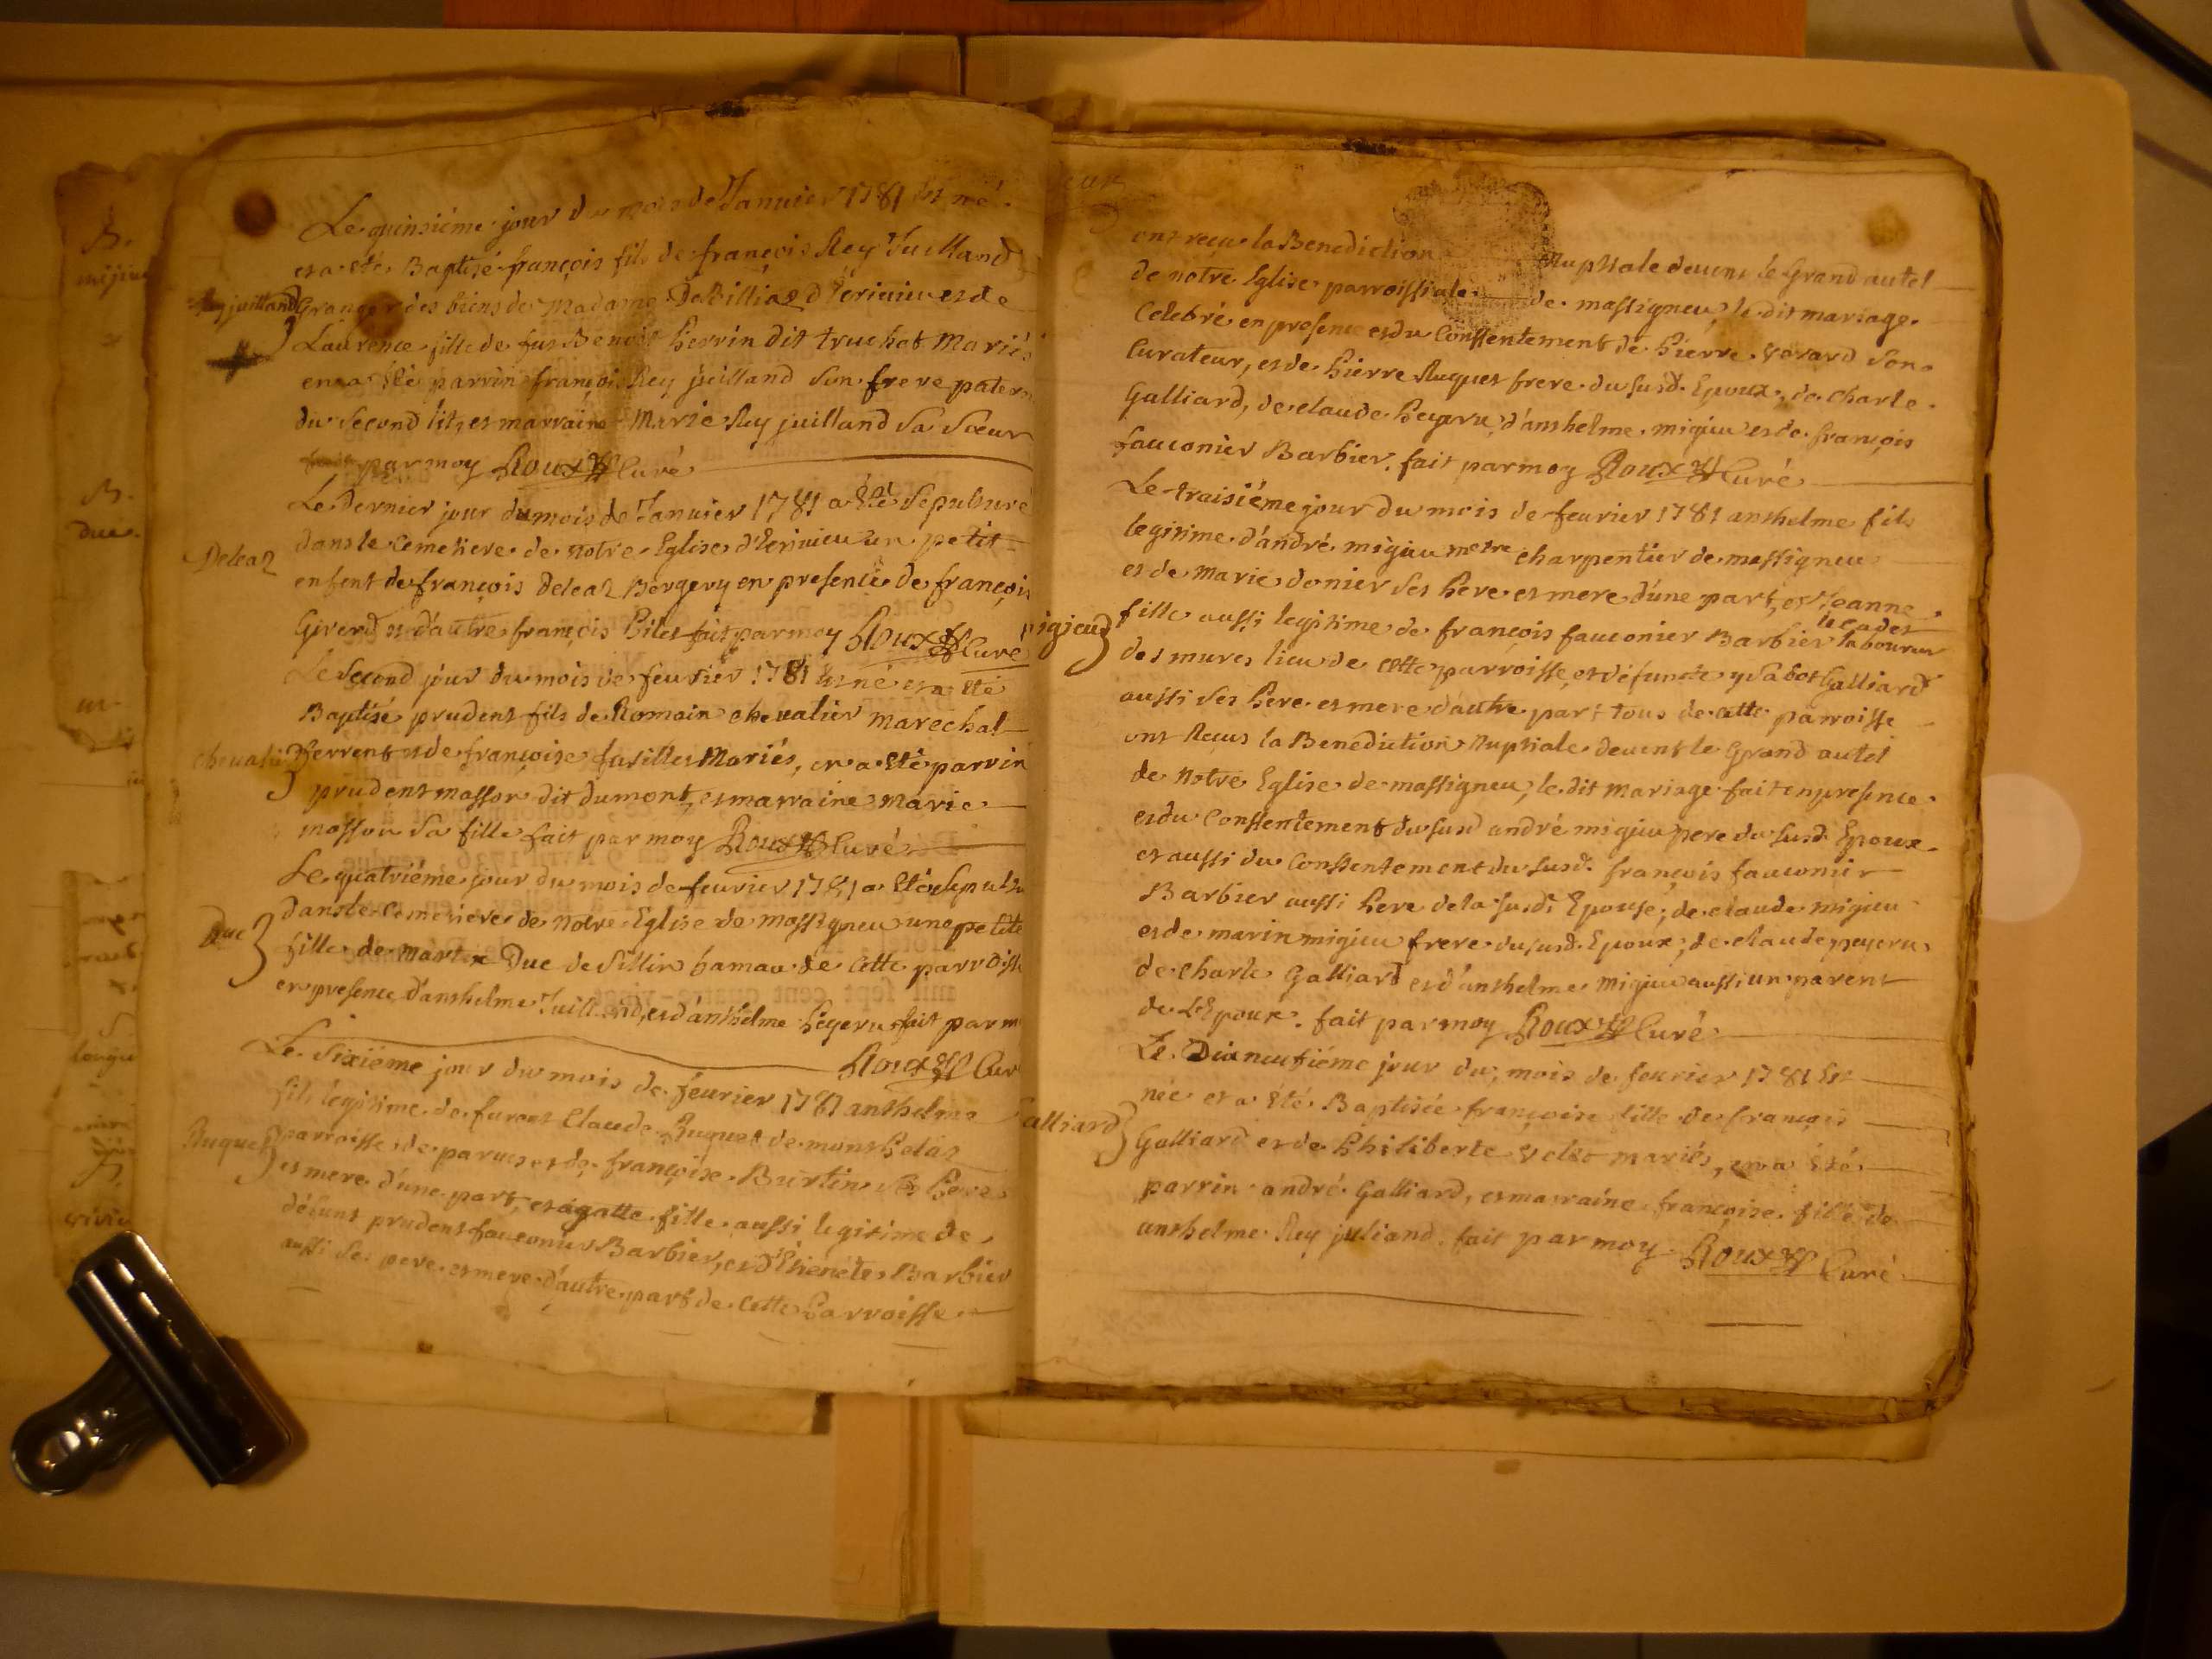 Le quinsiéme jour du mois de Januier 1781 Est né
et a eté Baptisé françois fils de françois Rey Juilland
Rey juilland
Granger des biens de Madame DeBilliard d'Eriuieu et de
Laurence fille de fut Benoit Perrin dit truchot Mariés
en a Eté parrin françois Rey juilland son frere patern
du second lit, et marraine Marie Rey juilland sa sœur
fait par moy Roux Curé
Le Dernier jour du mois de Januier 1781 a Eté sepulturé
dans le cemetiere de notre Eglise d'Eriuieu un petit
Deleaz
enfent de françois Deleaz Bergery en presence de françois
Girerd et d'autre françois Pilet fait par moy Roux Curé
Le second jour du mois de feurier 1781 Est né et a eté
Baptisé prudent fils de Romain cheualier marechal
cheualier
ferrent et de françoise fusillet Mariés, en a Eté parrin
prudent masson dit dumont, et marraine marie
masson sa fille fait par moy Roux Curé
Le quatriéme jour du mois de feurier 1781 a Eté sepultu
dans le Cemetiere de notre Eglise de massigneu une petite
Duc
fille de Martin Duc de Sillin hamau de cette parroisse
en presence d'anthelme Juilland, et d'anthelme Peyeru fait par m
Roux Cur
Le sixiéme jour du mois de feurier 1781 anthelme
fils légitime de furent Claude Ruquet de montPelaz
Ruquet
parroisse de parues et de françoise Burtin ses Pere
et mere d'une part, et agatte fille aussi legitime de
défunt prudent fauconier Barbier, et d'Etienete Barbier
aussi ses pere et mere d'autre part de cette Parroisse
ont reçu la Benediction Nuptiale deuent le Grand autel
de notre Eglise parroissiale de massigneu, le dit mariage
Celebré en presence et du Consentement de Pierre Gerard son
Curateur, et de Pierre Ruquet frere du susd. Epoux, de Charle
Galliard, de claude Peyeru, d'anthelme migieu et de françois
fauconier Barbier. fait par moy Roux Curé
Le traisiéme jour du mois de feurier 1781 anthelme fils
legitime d'andré migieu metre charpentier de massigneu
et de Marie donier ses Pere et mere d'une part, et Jeanne
le cadet
migieu
fille aussi legitime de françois fauconier Barbier laboureur
des mures lieu de cette parroisse, et défuncte ysabot Galliard
aussi ses Pere et mere d'autre part tous de cette parroisse
ont Reçus la Benediction Nuptiale deuent le Grand autel
de notre Eglise de massigneu, le dit mariage fait en presence
et du Consentement du susd andré migieu pere du susd. Epoux
et aussi du Consentement du susd. françois fauconier
Barbier aussi Pere de la susd. Epouse; de claude migieu
et de marin migieu frere du susd. Epoux; de claude peyeru
de Charle Galliard et d'anthelme migieu aussi un parent
de l'Epoux. fait par moy Roux Curé
Le Dianeufiéme jour du mois de feurier 1781 Est
née et a Eté Baptisée françoise fille de françois
alliard
Galliard et de Philiberte Velet mariés, en a Eté
parrin andré Galliard, et marraine françoise fille de
anthelme Rey juliand. fait par moy Roux Curé